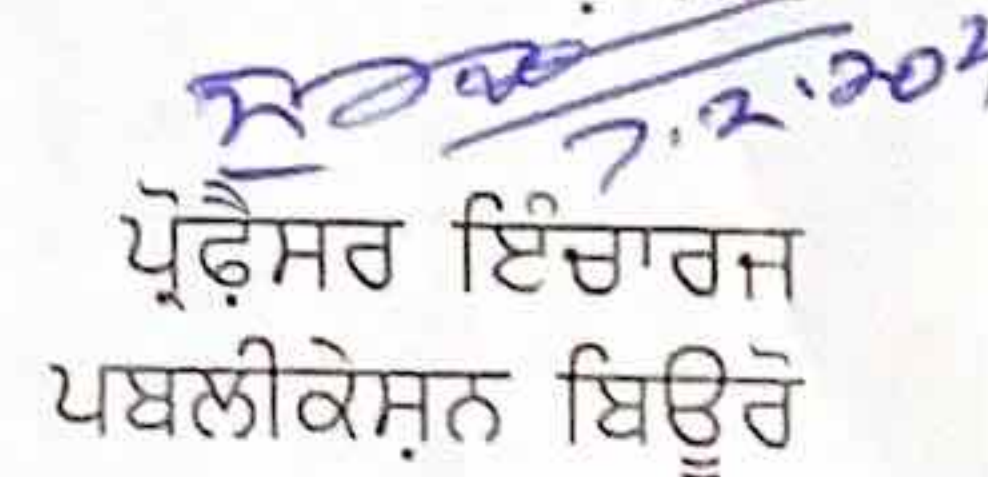 7.2.202
ਪ੍ਰੋਫ਼ੈਸਰ ਇੰਚਾਰਜ
ਪਬਲੀਕੇਸ਼ਨ ਬਿਊਰੋ